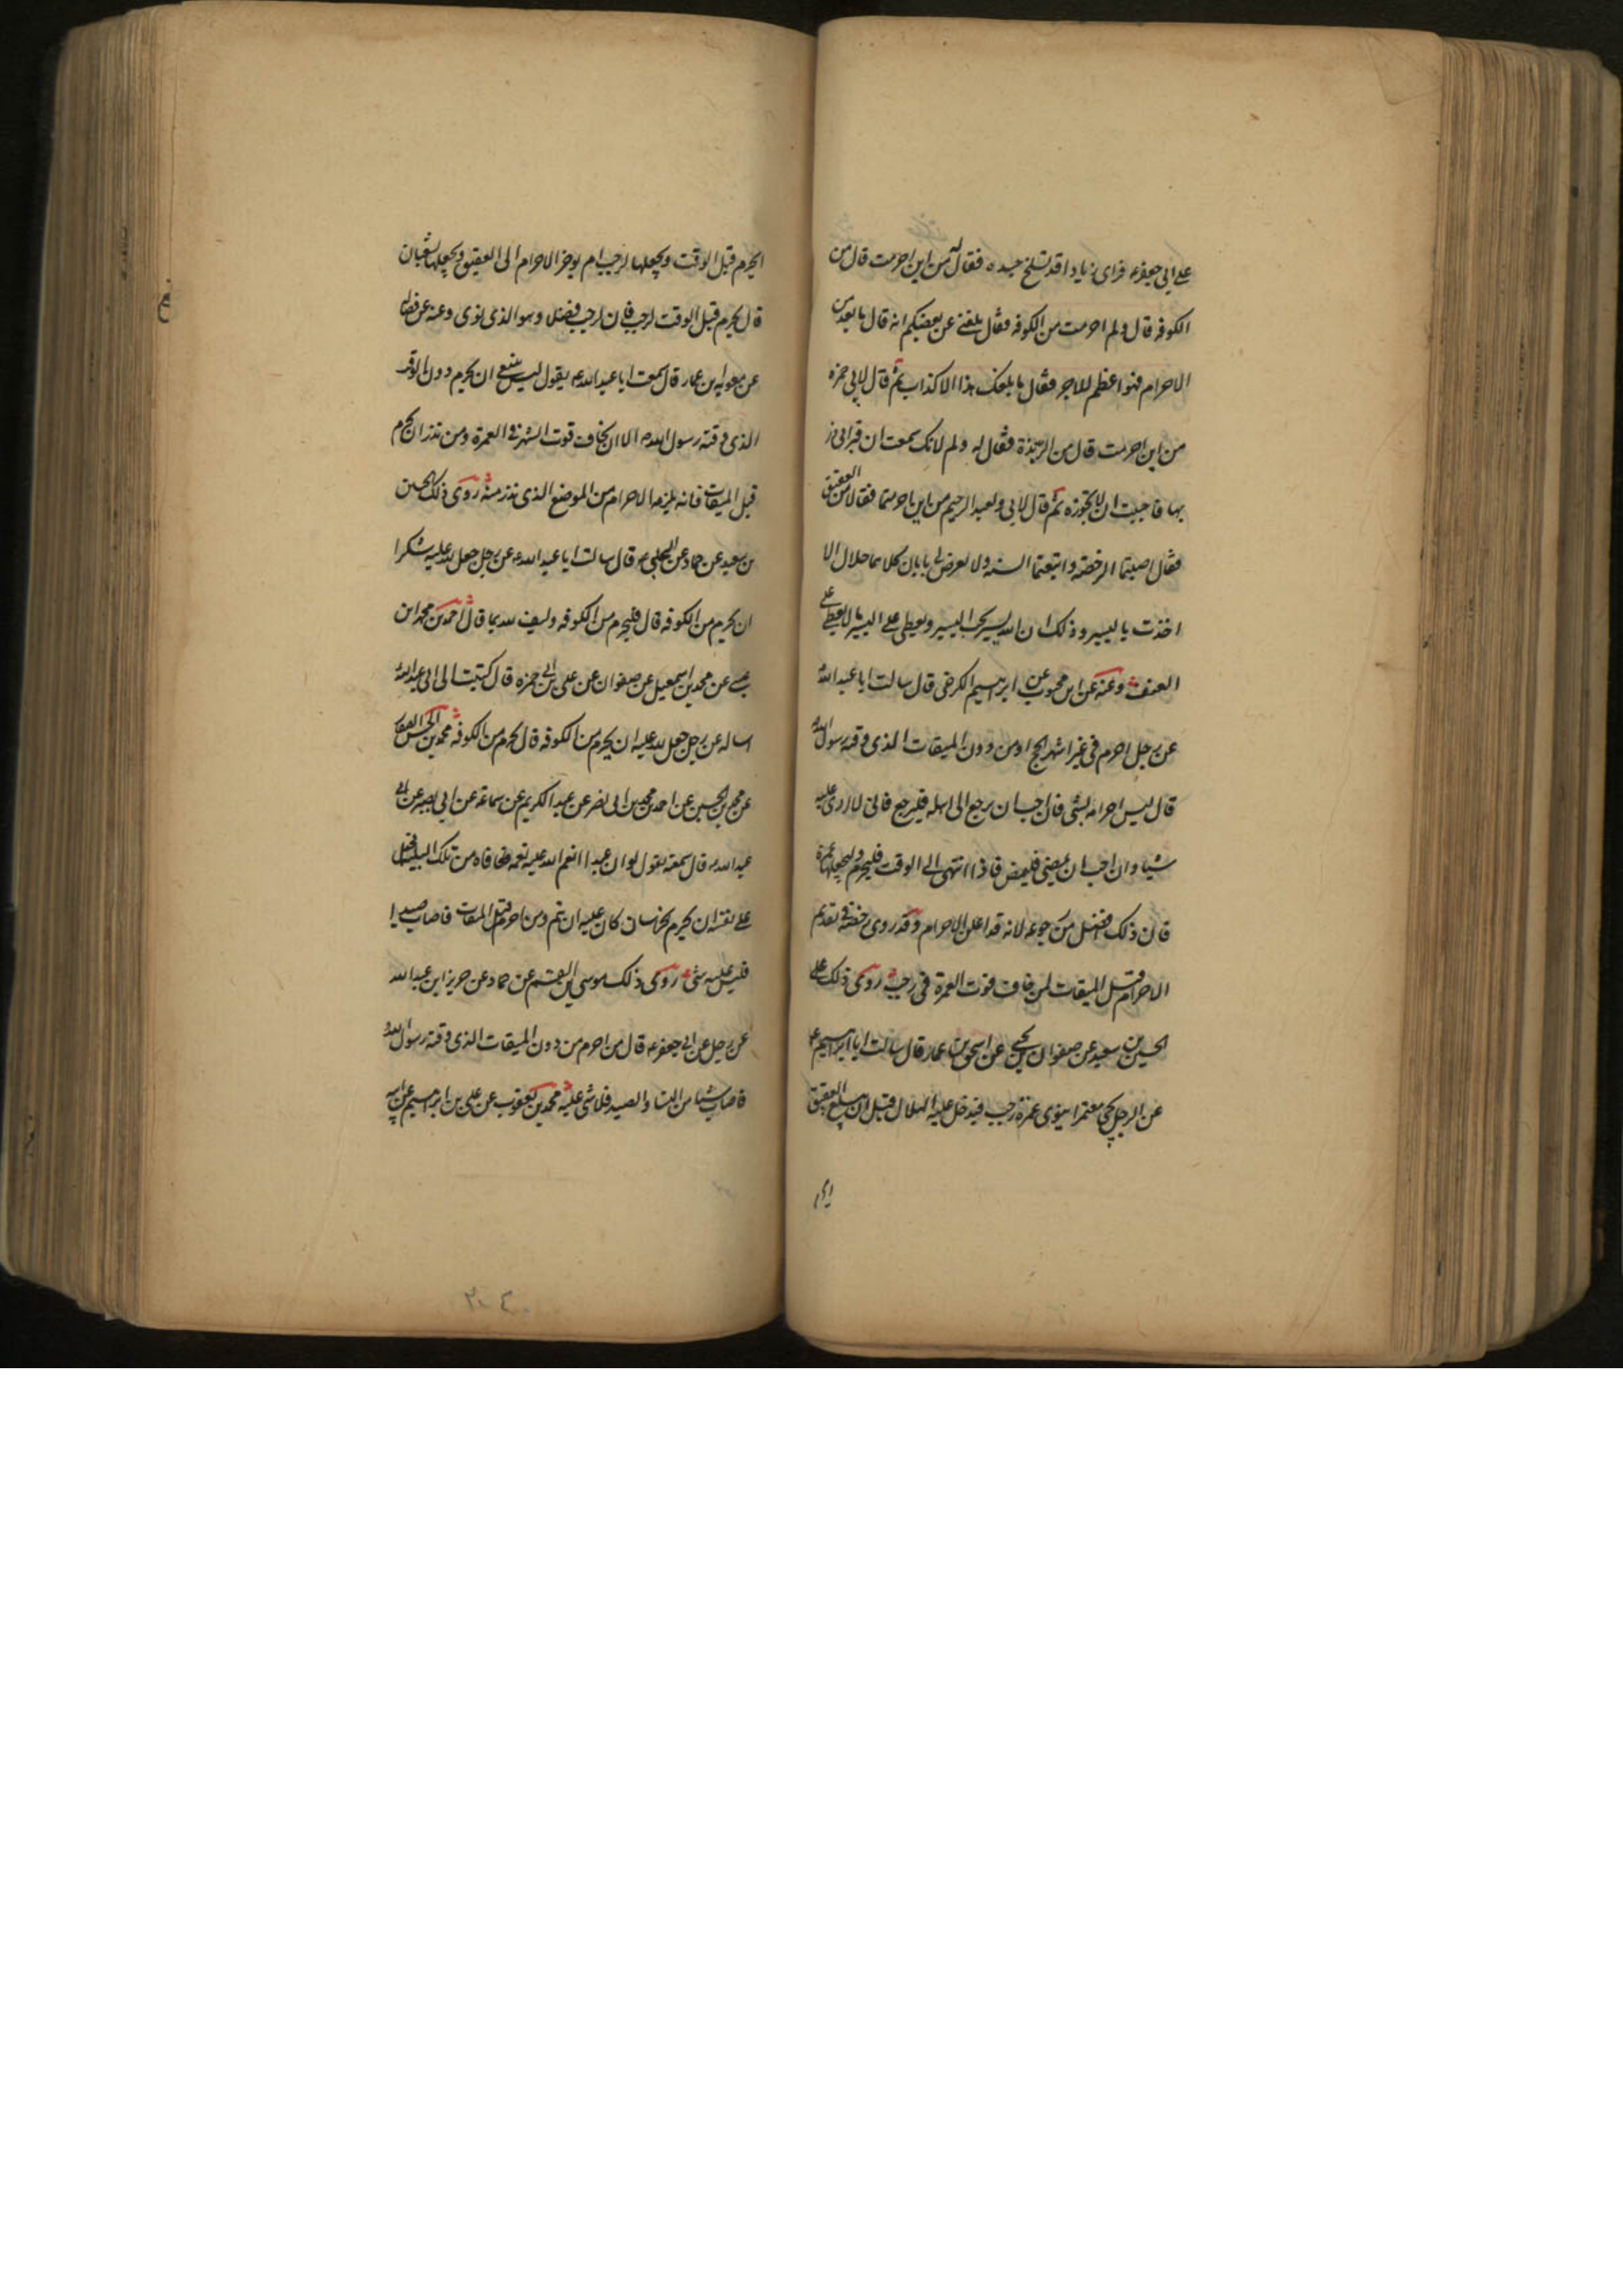 على ابى جعفر ع فراى زيادا قد تسلخ جسده فقال له من اين احرمت قال من
الكوفه قال ولم احرمت من الكوفه فقال بلغنى عن بعضكم انه قال ما بعد من
الاحرام فهو اعظم للاجر فقال ما بلغك هذا الا كذاب ثم قال لابى حمزه
من اين احرمت قال من الربذة فقال له ولم لانك سمعت ان قبر ابى ذر
بها فاحببت ان لا تجوزه ثم قال لابى ولعبد الرحيم من اين احرمتما فقالا من العقيق
فقال اصبتما الرخصة واتبعتما السنه ولا يعرض لى بابان كلاهما حلال الا
اخذت باليسير وذلك ان الله يسير يحب اليسير ويعطى على اليسير ما لا يعطى على
العنف وعنه عن ابن محبوب عن ابرهيم الكرخى قال سالت ابا عبد الله
عن رجل احرم فى غير اشهر الحج او من دون الميقات الذى وقته رسول الله
قال ليس احرامه بشئ فان احب ان يرجع الى اهله فليرجع فانى لا ارى عليه
شيئا وان احب ان يمضى فليمض فاذا انتهى الى الوقت فليحرم وليجعلها عمرة
فان ذلك افضل من رجوعه لانه قد اعلن الاحرام وقد روى رخصة فى تقديم
الاحرام قبل الميقات لمن خاف فوت العمرة فى رجب روى ذلك على
الحسين بن سعيد عن صفوان بن يحيى عن اسحق بن عمار قال سالت ابا ابرهيم ع
عن الرجل يجئ معتمرا ينوى عمرة رجب فيدخل عليه الهلال قبل ان يبلغ العقيق
ايحرم
ايحرم قبل الوقت ويجعلها لرجب ام يوخر الاحرام الى العقيق ويجعلها لشعبان
قال يحرم قبل الوقت لرجب فان لرجب فضلا وهو الذى نوى وعنه عن فضاله
عن معويه بن عمار قال سمعت ابا عبد الله ع يقول ليس ينبغى ان يحرم دون الوقت
الذى وقته رسول الله ص الا ان يخاف فوت الشهر فى العمرة ومن نذر ان يحرم
قبل الميقات فانه يلزمه الاحرام من الموضع الذى نذر منه روى ذلك الحسين
بن سعيد عن حماد عن الحلبى قال سالت ابا عبد الله ع عن رجل جعل لله عليه شكرا
ان يحرم من الكوفه قال فليحرم من الكوفه وليف لله بما قال احمد بن محمد ابن
عيسى عن محمد بن اسمعيل عن صفوان عن على بن ابى حمزه قال كتبت الى ابى عبد الله
اساله عن رجل جعل لله عليه ان يحرم من الكوفه قال يحرم من الكوفه محمد بن الحسن الصفار
عن محمد بن الحسين عن احمد بن محمد بن ابى نصر عن عبد الكريم عن سماعة عن ابى بصير عن ابى
عبد الله ع قال سمعته يقول لو ان عبدا انعم الله عليه نعمه فعافاه من تلك البلية فجعل
على نفسه ان يحرم بخراسان كان عليه ان يتم ومن احرم قبل الميقات فاصاب صيدا
فليس عليه شئ روى ذلك موسى بن القسم عن حماد عن حريز ابن عبد الله
عن رجل عن ابى جعفر ع قال من احرم من دون الميقات الذى وقته رسول الله
فاصاب شيئا من النساء والصيد فلا شئ عليه محمد بن يعقوب عن على بن ابرهيم عن ابيه